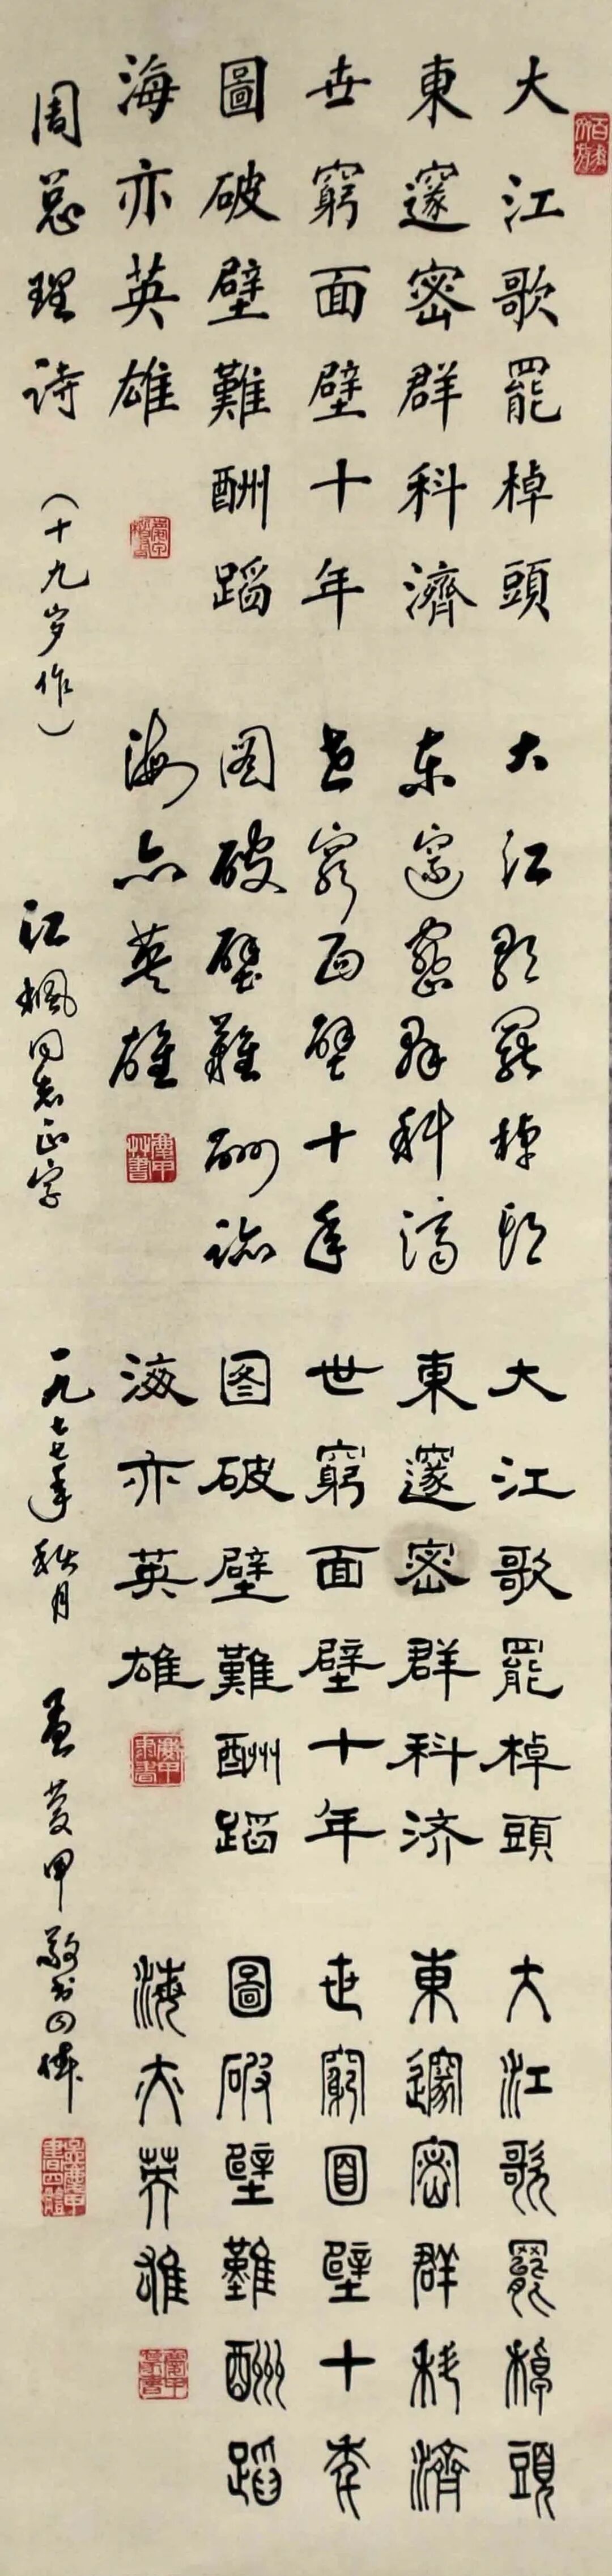 大江歌罷棹頭
東邃密群科濟
世窮面壁十年
圖破壁難酬蹈
海亦英雄
大江歌罷棹頭
东邃密群科濟
世窮面壁十年
图破壁難酬蹈
海亦英雄
慶甲草書
大江歌罷棹頭
東邃密群科济
世窮面壁十年
图破壁難酬蹈
海亦英雄
慶甲隶書
大江歌罷棹頭
東邃密群科濟
世窮面壁十年
圖破壁難酬蹈
海亦英雄
慶甲篆書
周总理诗
（十九岁作）
江楓同志正字
一九七七年秋月
庆甲敬书四体